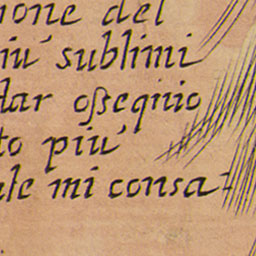 ione del
iu' sublimi
dar oßequio
to più
ele mi consa-